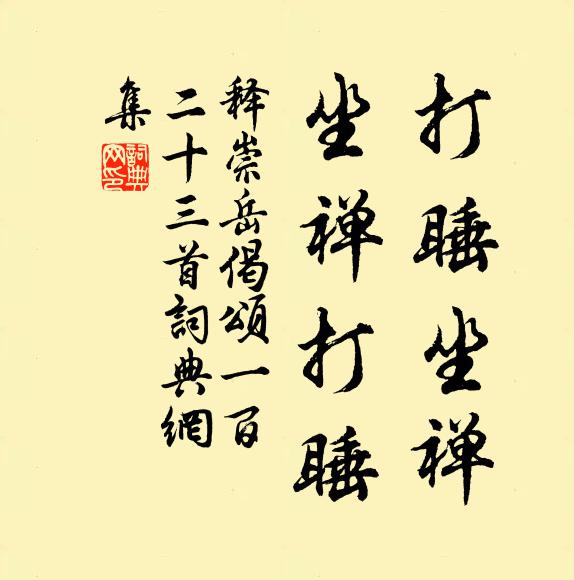 打睡坐禅
坐禅打睡
释崇岳偈颂一百
二十三首詞典網
集
詞典網印